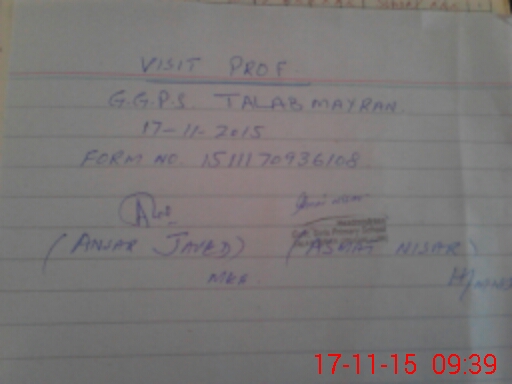 VISIT PROF
G.G.P.S TALAB MAYRAN.
17-11-2015
FORM NO. 1511170936108
(ANSAR JAVED) (ASMAT NISAR)
MEA
Govt. Girls Primary School
17-11-15 09:39